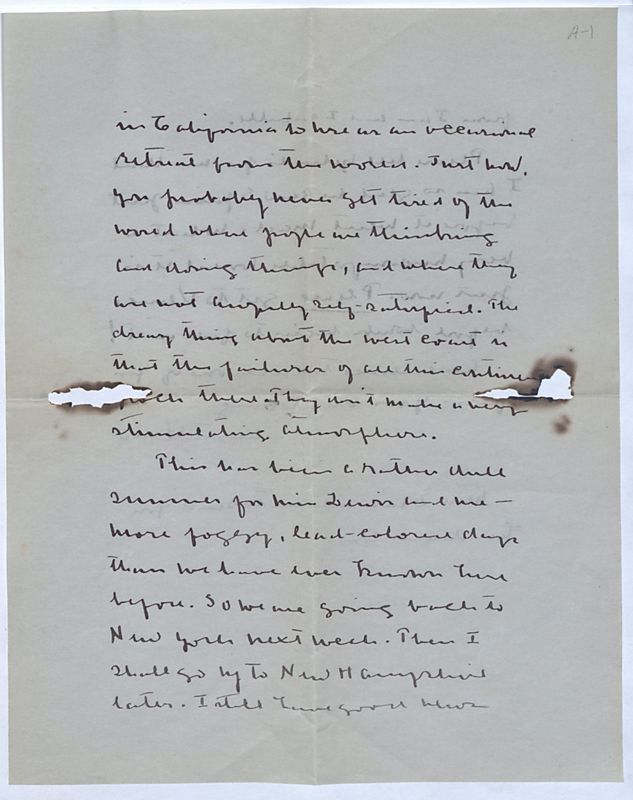 A-1
in California to use as an occasional
retreat from the world. Just now,
you probably never get tired of the
world where people are thinking
and doing things, and where they
are not awfully self-satisfied. The
dreary thing about the west coast is
that the failures of all this continent
there. They don't make a very
stimulating atmosphere.
This has been a rather dull
summer for Miss Lewis and me —
more foggy, lead-colored days
than we have ever known here
before. So we are going back to
New York next week. Then I
shall go up to New Hampshire
later. I still have good news